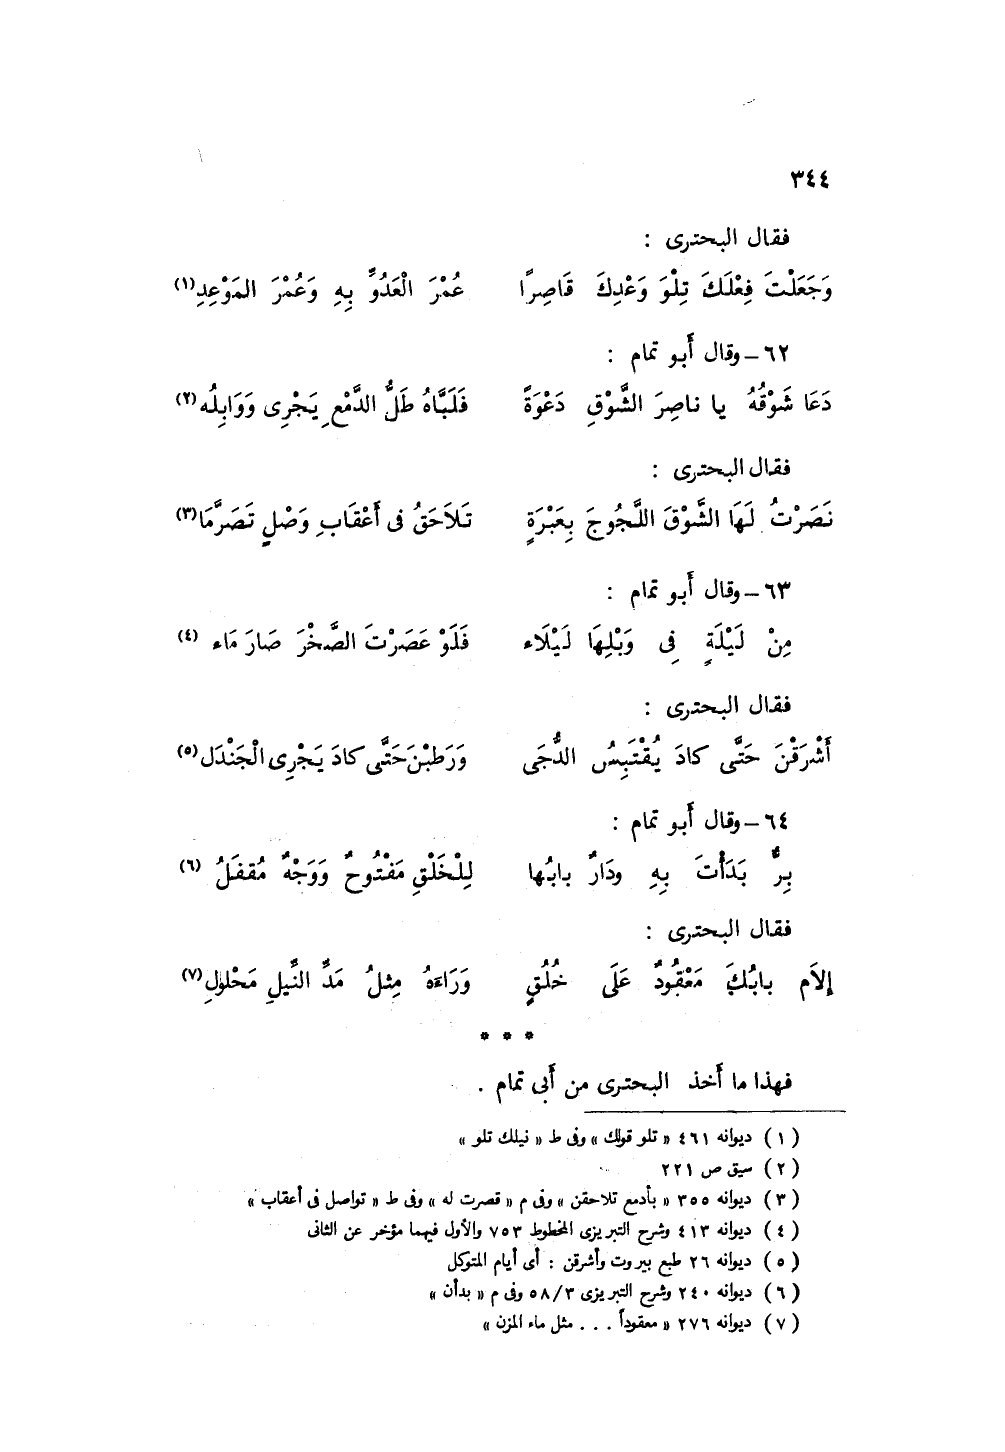 ٣٤٤
فقال البحترى :
وَجَعَلْتَ فِعْلَكَ تِلْوَ وَعْدِكَ قَاصِرًا عُمْرَ الْعَدُوِّ بِهِ وَعُمْرَ المَوْعِدِ(١)
٦٢ – وقال أَبو تمام :
دَعَا شَوْقُهُ يا ناصِرَ الشَّوْقِ دَعْوَةً فَلَبَّاهُ طَلُّ الدَّمْعِ يَجْرِى وَوَابِلُه(٢)
فقال البحترى :
نَصَرْتُ لَهَا الشَّوْقَ اللَّجُوجَ بِعَبْرَةٍ تَلاَحَقُ فى أَعْقَابِ وَصْلٍ تَصَرَّمَا(٣)
٦٣ – وقال أَبو تمام :
مِنْ لَيْلَةٍ فِى وَبْلِهَا لَيْلَاء فَلَوْ عَصَرْتَ الصَّخْرَ صَارَ مَاء (٤)
فقال البحترى :
أَشْرَقْنَ حَتَّى كادَ يُقْتَبِسُ الدُّجَى وَرَطبْنَ حَتَّى كادَ يَجْرِى الْجَنْدَل(٥)
٦٤ – وقال أَبو تمام :
بِرٌّ بَدَأْتَ بِهِ ودَارٌ بابُها لِلْخَلْقِ مَفْتُوحٌ وَوَجْهٌ مُقفَلُ (٦)
فقال البحترى :
إِلاَم بابُكَ مَعْقُودٌ عَلَى خُلُقٍ وَرَاءَهُ مِثلُ مَدِّ النِّيلِ مَحْلولِ(٧)
* * *
فهذا ما أَخذ البحترى من أَبى تمام .
(١) ديوانه ٤٦١ « تلو قولك » وفى ط « نيلك تلو »
(٢) سبق ص ٢٢١
(٣) ديوانه ٣٥٥ « بأدمع تلاحقن » وفى م « قصرت له » وفى ط « تواصل فى أعقاب »
(٤) ديوانه ٤١٣ وشرح التبريزى المخطوط ٧٥٣ والأول فيهما مؤخر عن الثانى
(٥) ديوانه ٢٦ طبع بيروت وأشرقن : أى أيام المتوكل
(٦) ديوانه ٢٤٠ وشرح التبريزى ٥٨/٣ وفى م « بدأن »
(٧) ديوانه ٢٧٦ « معقوداً . . . مثل ماء المزن »